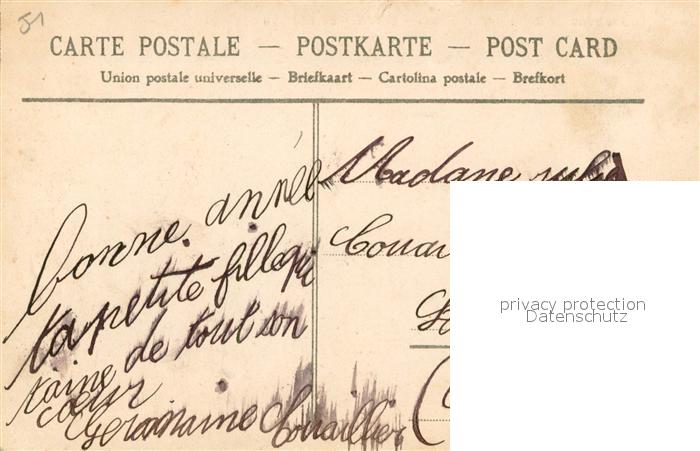 51
CARTE POSTALE — POSTKARTE — POST CARD
Union postale universelle — Briefkaart — Cartolina postale — Brefkort
bonne année
ta petite fille qui
taime de tout son
cœur
Germaine Couaillier
Madame
Couai
privacy protection
Datenschutz